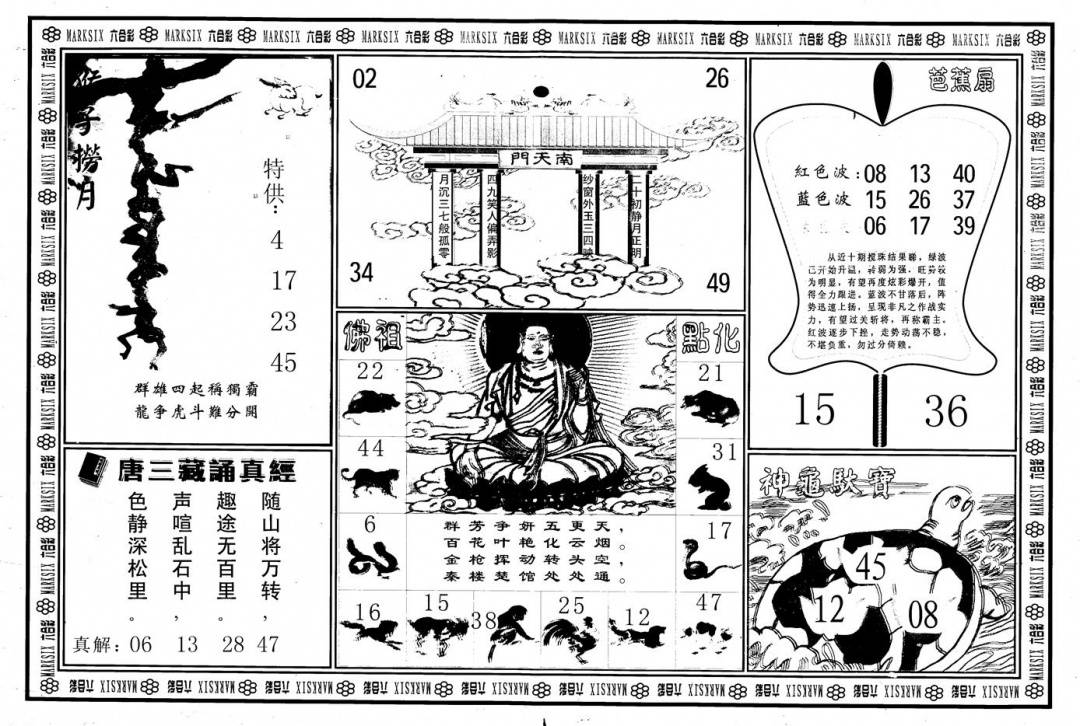 MARKSIX 六合彩 MARKSIX 六合彩 MARKSIX 六合彩 MARKSIX 六合彩 MARKSIX 六合彩 MARKSIX 六合彩 MARKSIX 六合彩 MARKSIX 六合彩 MARKSIX 六合彩 MARKSIX 六合彩
猴子撈月
特供：
4
17
23
45
群雄四起稱獨霸
龍爭虎斗難分開
唐三藏誦真經
随山将万转，
趣途无百里。
声喧乱石中，
色静深松里。
真解：06 13 28 47
02
26
南天門
二十初静月正明
纱窗外玉三四映
四九笑人偏弄影
月沉三七般孤零
34
49
佛祖
點化
22
21
44
31
6
17
群芳争妍五更天，
百花叶艳化云烟。
金枪挥动转头空，
秦楼楚馆处处通。
16
15
38
25
12
47
芭蕉扇
紅色波：08 13 40
藍色波 15 26 37
06 17 39
从近十期搅珠结果睇，绿波
已开始升温，转弱为强，旺势较
为明显，有望再度炫彩爆开，值
得全力跟进。蓝波不甘落后，阵
势迅速上扬，呈现非凡之作战实
力，有望过关斩将，再称霸主。
红波逐步下挫，走势动荡不稳，
不堪负重，勿过分倚赖。
15
36
神龜馱寶
45
12
08